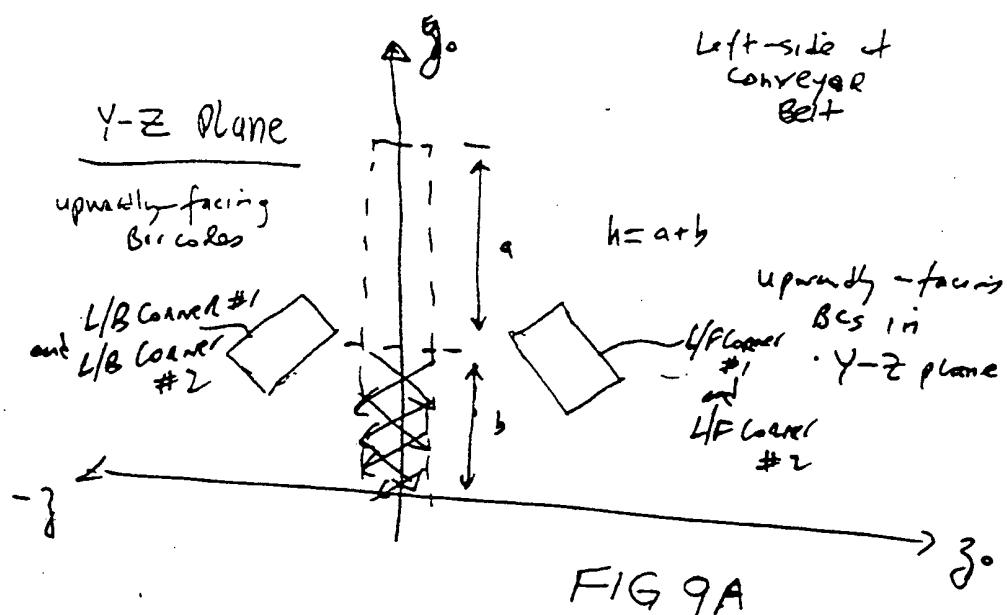 y₀
Left-side of
Conveyor
Belt
Y-Z Plane
upwardly-facing
Bar codes
a
h=a+b
upwardly-facing
BCs in
Y-Z plane
L/B Corner #1
and L/B Corner
#2
L/F Corner
#1
and
L/F Corner
#2
b
-z
z₀
FIG 9A